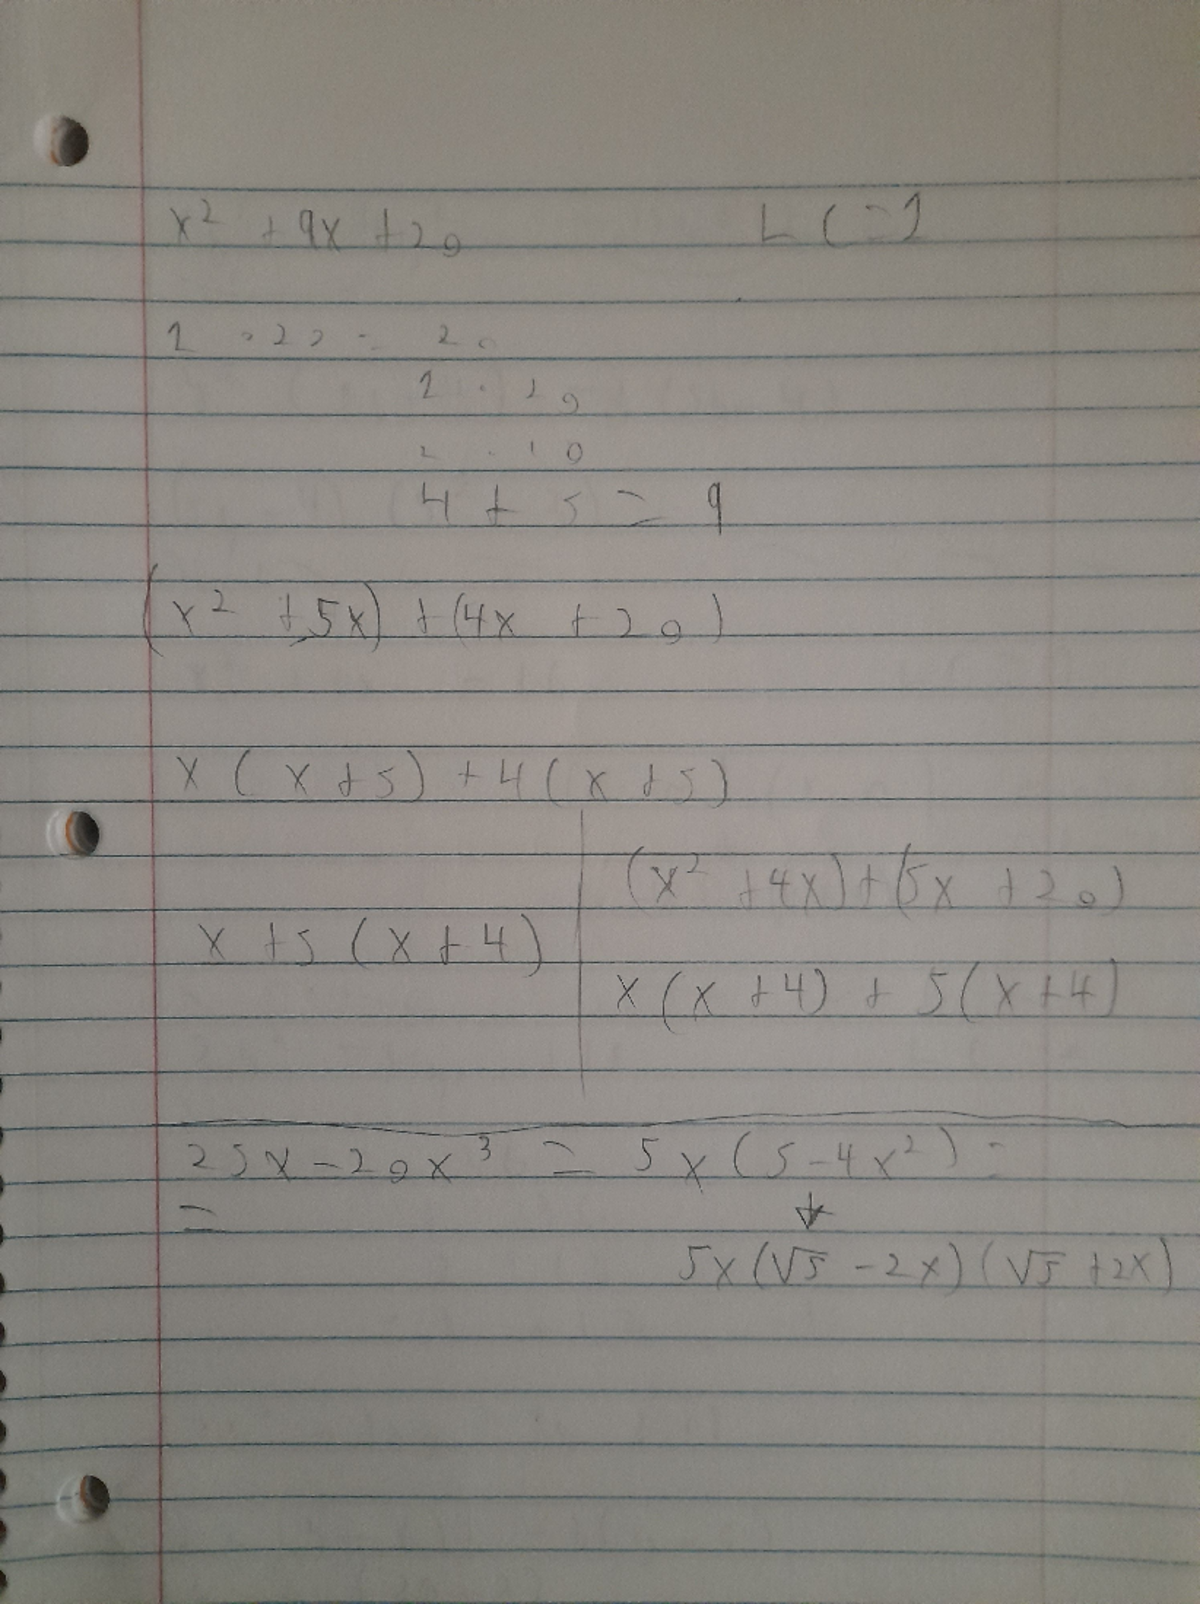 x² + 9x + 20
LC = 1
1 · 20 = 20
1 · 20
2 · 10
4 + 5 = 9
(x² + 5x) + (4x + 20)
x (x + 5) + 4 (x + 5)
x + 5 (x + 4)
(x² + 4x) + (5x + 20)
x (x + 4) + 5 (x + 4)
25x - 20x³ = 5x (5 - 4x²) =
=
↓
5x (√5 - 2x) (√5 + 2x)